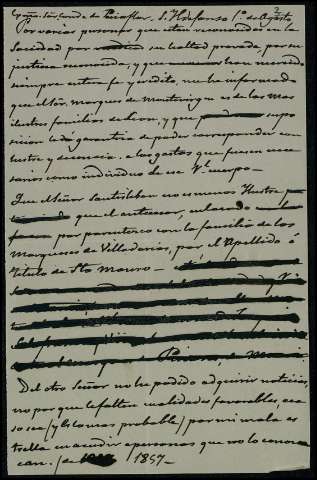 Exmo. Sor. Conde de Peñaflor. S. Ildefonso 1º. de Agosto
Por varias personas que estan reconocidas en la
Sociedad por su lealtad provada, por su
justicia reconocida, y que han merecido
siempre entera fe y credito, me he informado
que el Sor. marques de es de las mas
ilustres familias de Leon, y que su po-
sicion le dá garantia de poder corresponder con
lustre y decencia, a los gastos que fuesen nece-
sarios como individuo de ese Rl. cuerpo—
Que el Señor Santisteban no es menos Ilustre
que el anterior, enlazado
por parentesco con la familia de los
marqueses de Villadarias, por el Apellido ó
Titulo de Sto. Mauro—
Del otro Señor no he podido adquirir noticias,
no por que le falten cualidades favorables, aca-
so sea (y es lo mas probable) por mi mala es-
trella en acudir a personas que no lo conoz-
can. de 1857—